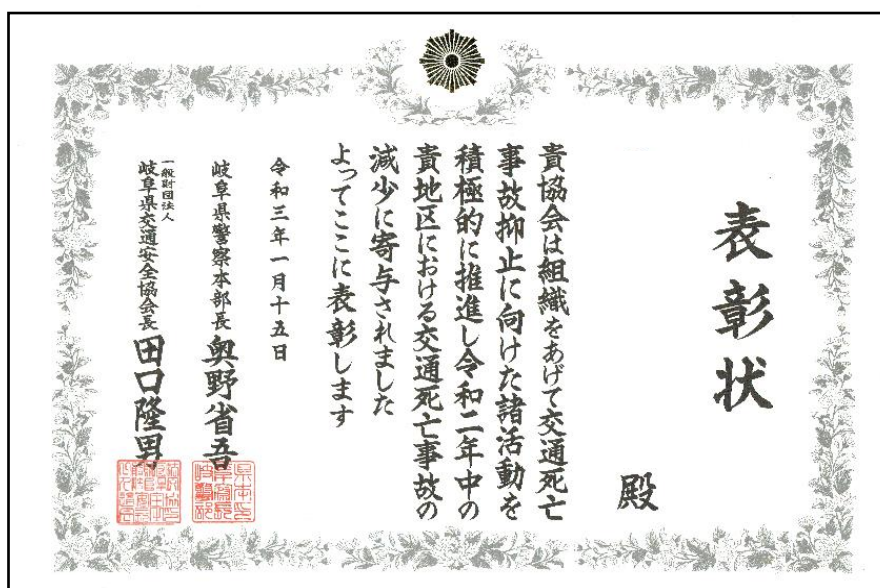 表彰状
殿
貴協会は組織をあげて交通死亡
事故抑止に向けた諸活動を
積極的に推進し令和二年中の
貴地区における交通死亡事故の
減少に寄与されました
よってここに表彰します
令和三年一月十五日
岐阜県警察本部長 奥野省吾
一般財団法人
岐阜県交通安全協会長 田口隆男